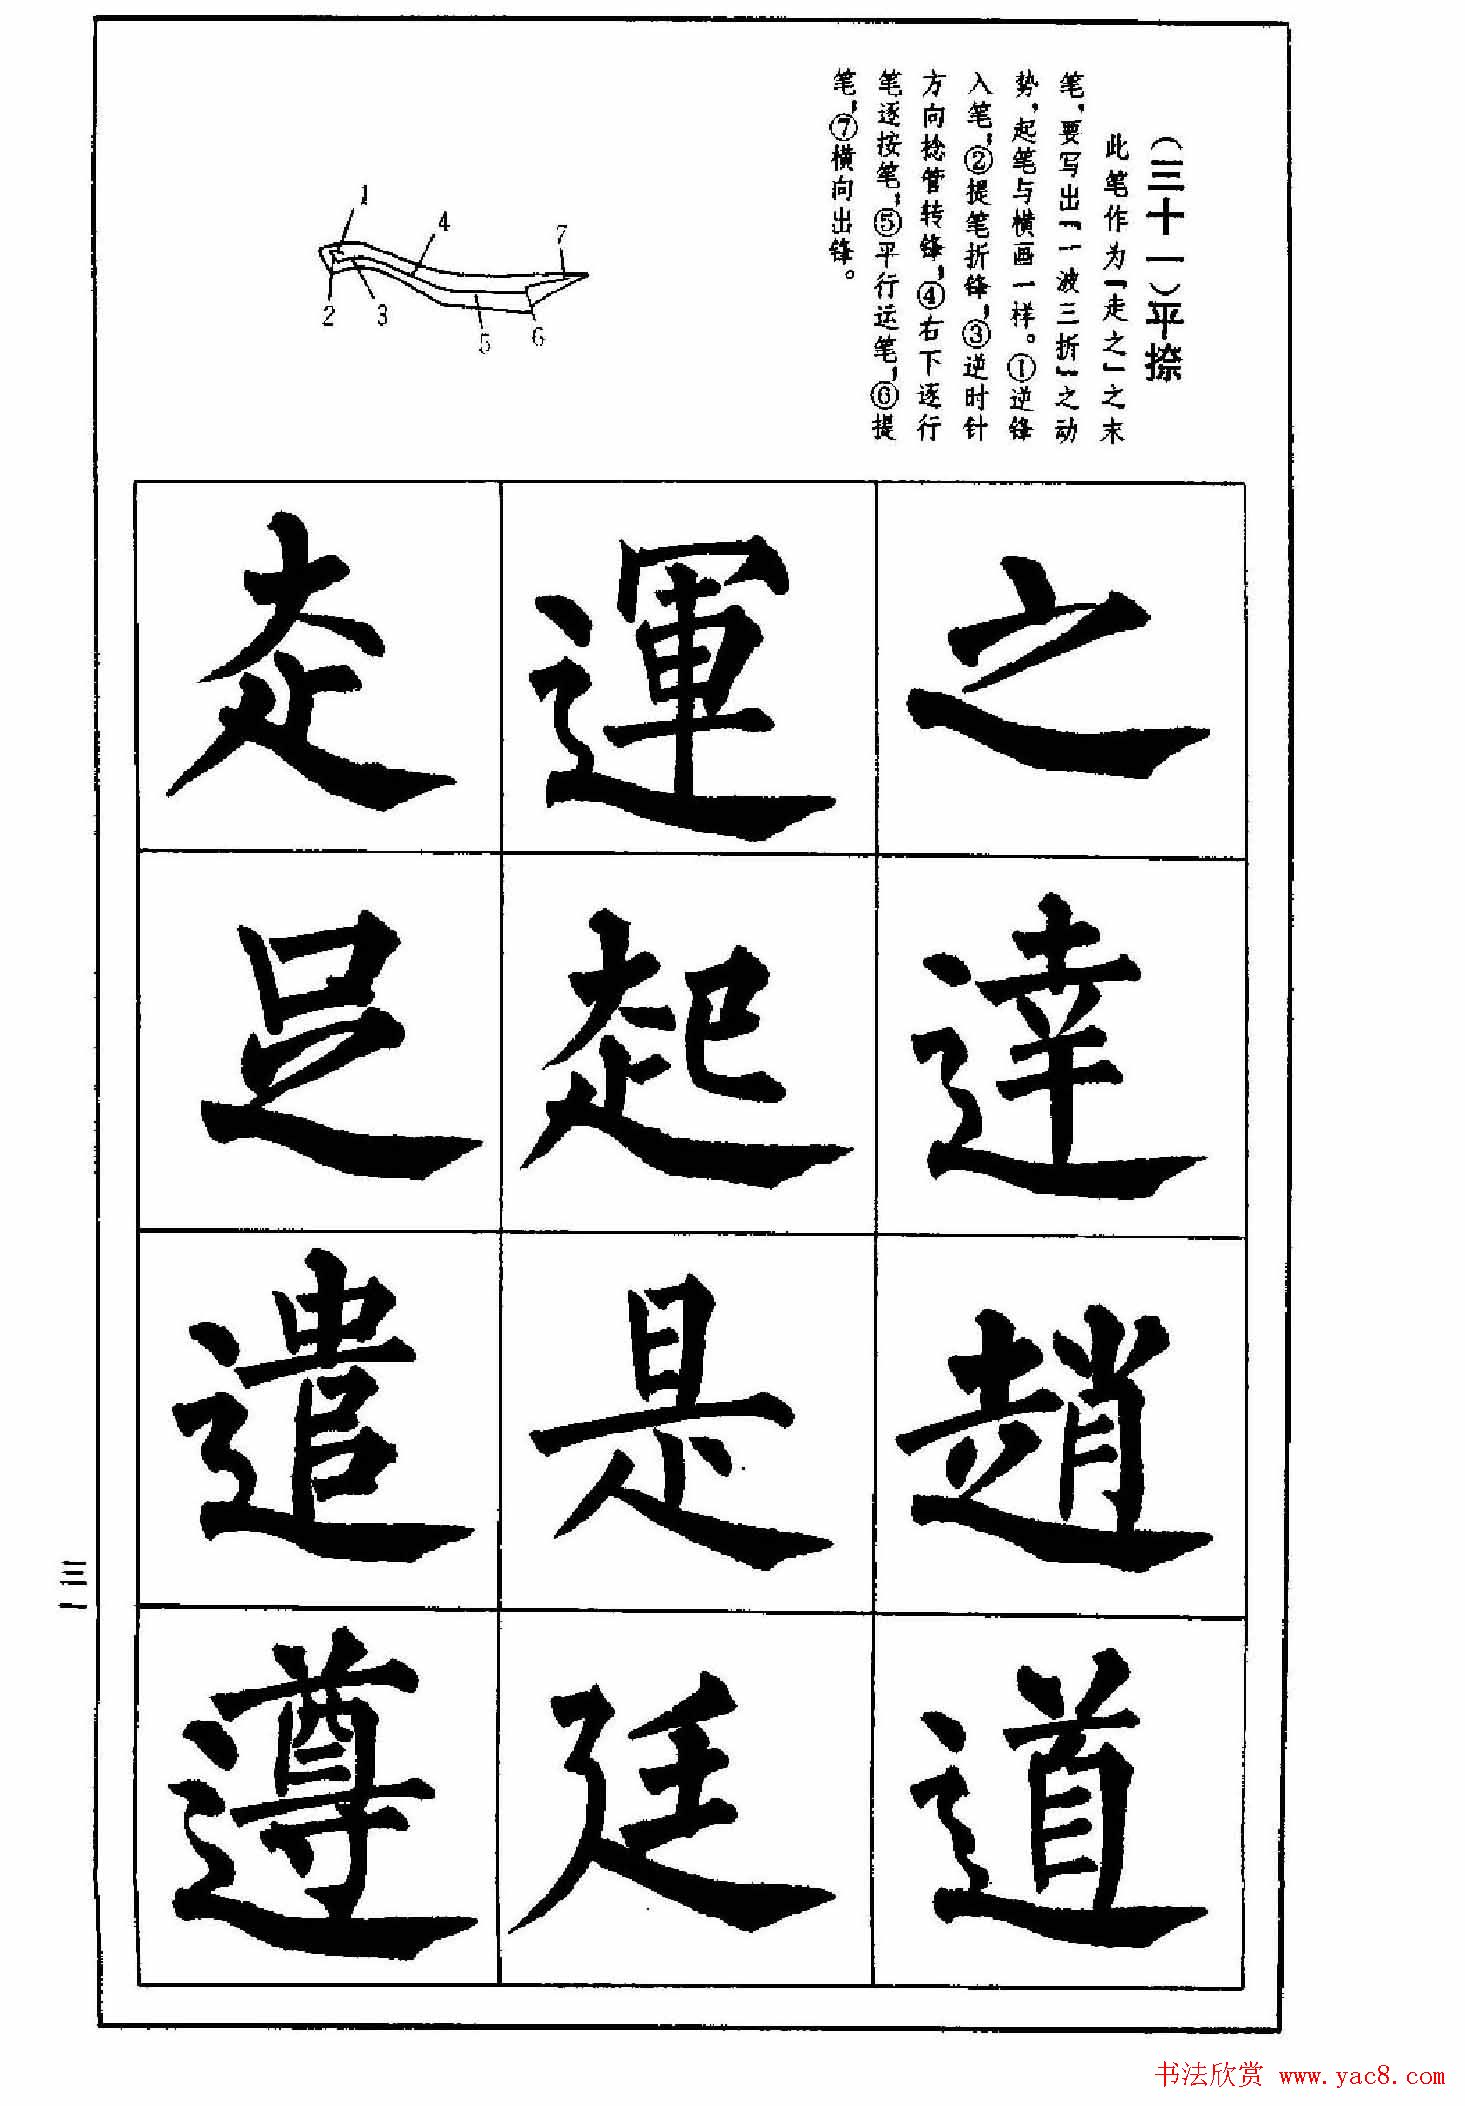 (三十一)平捺
此笔作为“走之”之末
笔,要写出“一波三折”之动
势,起笔与横画一样。①逆锋
入笔;②提笔折锋;③逆时针
方向捻管转锋;④右下逐行
笔逐按笔;⑤平行运笔;⑥提
笔;⑦横向出锋。
1
2
3
4
5
6
7
之
達
趙
道
運
起
是
廷
走
足
遣
遵
三一
书法欣赏 www.yac8.com